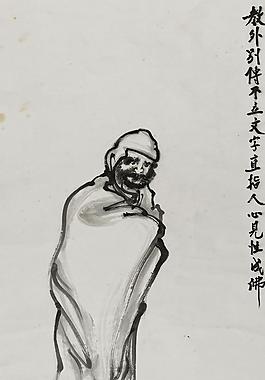 教外别傳不立文字直指人心見性成佛